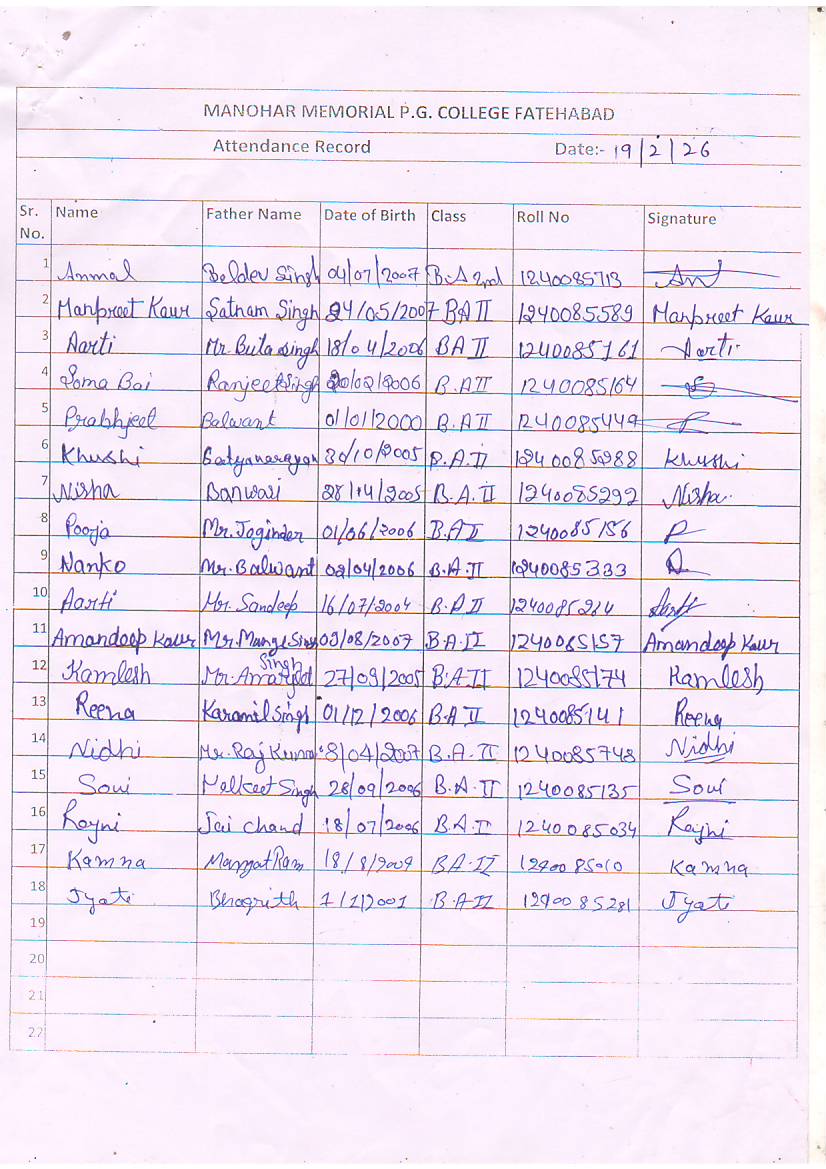 MANOHAR MEMORIAL P.G. COLLEGE FATEHABAD
Attendance Record Date:- 19/2/26
Sr. No. Name Father Name Date of Birth Class Roll No Signature
1 Anmol Beldev Singh 04/07/2007 B.A 2nd 1240085713
2 Manpreet Kaur Satnam Singh 24/05/2007 BA II 1240085589 Manpreet Kaur
3 Aarti Mr. Buta singh 18/04/2006 BA II 1240085161 Aarti
4 Soma Bai Ranjeet Singh 20/02/2006 B.A II 1240085164
5 Prabhjeet Balwant 01/01/2000 B.A II 1240085449
6 Khushi Satyanarayan 30/10/2005 B.A.II 1240085288 Khushi
7 Nisha Banwari 28/14/2005 B.A.II 1240085292 Nisha.
8 Pooja Mr. Joginder 01/06/2006 B.A II 1240085156 P
9 Nanko Mr. Balwant 02/04/2006 B.A.II 1240085333
10 Aarti Mr. Sandeep 16/07/2004 B.A II 1240085214 Aarti
11 Amandeep Kaur Mr. Mange Sing 09/08/2007 B.A.II 1240085157 Amandeep Kaur
12 Kamlesh Mr. Amarjeet Singh 27/09/2005 B.A-II 1240085174 Kamlesh
13 Reena Karamil Singh 01/12/2006 B.A II 1240085141 Reena
14 Nidhi Mr. Raj Kumar 8/04/2007 B.A.II 1240085748 Nidhi
15 Soui Malkeet Singh 28/09/2006 B.A.II 1240085135 Soui
16 Rajni Jai chand 18/07/2006 B.A.II 1240085034 Rajni
17 Kamna Mangat Ram 18/8/2004 BA-II 1240085010 Kamna
18 Jyati Bhagrith 1/1/2001 B.A-II 1240085281 Jyati
19
20
21
22